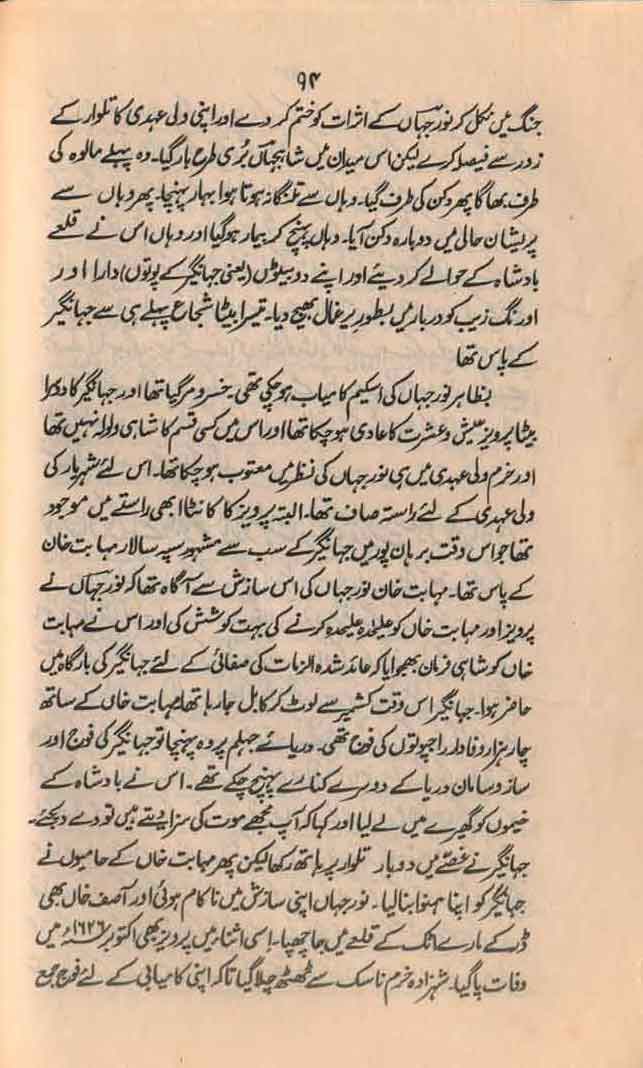 ۹۴
جنگ میں نکل کر نور جہاں کے اثرات کو ختم کر دے اور اپنی ولی عہدی کا تلوار کے
زور سے فیصلہ کرے لیکن اس میدان میں شاہجہاں بُری طرح ہار گیا۔ وہ پہلے مالوہ کی
طرف بھاگا پھر دکن کی طرف گیا۔ وہاں سے تلنگانہ ہوتا ہوا بہار پہنچا۔ پھر وہاں سے
پریشان حالی میں دوبارہ دکن آیا۔ وہاں پہنچ کر بیمار ہو گیا اور وہاں اس نے قلعے
بادشاہ کے حوالے کر دیئے اور اپنے دو بیٹوں (یعنی جہانگیر کے پوتوں) دارا اور
اورنگ زیب کو دربار میں بطور یرغمال بھیج دیا۔ تیسرا بیٹا شجاع پہلے ہی سے جہانگیر
کے پاس تھا
بظاہر نور جہاں کی اسکیم کامیاب ہو چکی تھی۔ خسرو مر گیا تھا اور جہانگیر کا دوسرا
بیٹا پرویز عیش و عشرت کا عادی ہو چکا تھا اور اس میں کسی قسم کا شاہی ولولہ نہیں تھا
اور خرم ولی عہدی میں ہی نور جہاں کی نظر میں معتوب ہو چکا تھا۔ اس لئے شہریار کی
ولی عہدی کے لئے راستہ صاف تھا۔ البتہ پرویز کا کانٹا ابھی راستے میں موجود
تھا جو اس وقت برہان پور میں جہانگیر کے سب سے مشہور سپہ سالار مہابت خان
کے پاس تھا۔ مہابت خان نور جہاں کی اس سازش سے آگاہ تھا کہ نور جہاں نے
پرویز اور مہابت خاں کو علیحدہ علیحدہ کرنے کی بہت کوشش کی اور اس نے مہابت
خاں کو شاہی فرمان بھجوایا کہ عائد شدہ الزمات کی صفائی کے لئے جہانگیر کی بارگاہ میں
حاضر ہوا۔ جہانگیر اس وقت کشمیر سے لوٹ کر کابل جا رہا تھا۔ مہابت خاں کے ساتھ
چار ہزار وفادار راجپوتوں کی فوج تھی۔ دریائے جہلم پر وہ پہنچا تو جہانگیر کی فوج اور
ساز و سامان دریا کے دوسرے کنارے پہنچ چکے تھے۔ اس نے بادشاہ کے
خیموں کو گھیرے میں لے لیا اور کہا کہ آپ مجھے موت کی سزا دیتے ہیں تو دے دیجئے۔
جہانگیر نے غصّے میں دوبار تلوار پر ہاتھ رکھا لیکن پھر مہابت خاں کے حامیوں نے
جہانگیر کو اپنا ہمنوا بنا لیا۔ نور جہاں اپنی سازش میں ناکام ہوئی اور آصف خاں بھی
ڈر کے مارے اٹک کے قلعے میں جا چھپا۔ اِسی اثناء میں پرویز بھی اکتوبر ۱۶۲۶ء میں
وفات پا گیا۔ شہزادہ خرم ناسک سے ٹھٹھ چلا گیا تاکہ اپنی کامیابی کے لئے فوج جمع